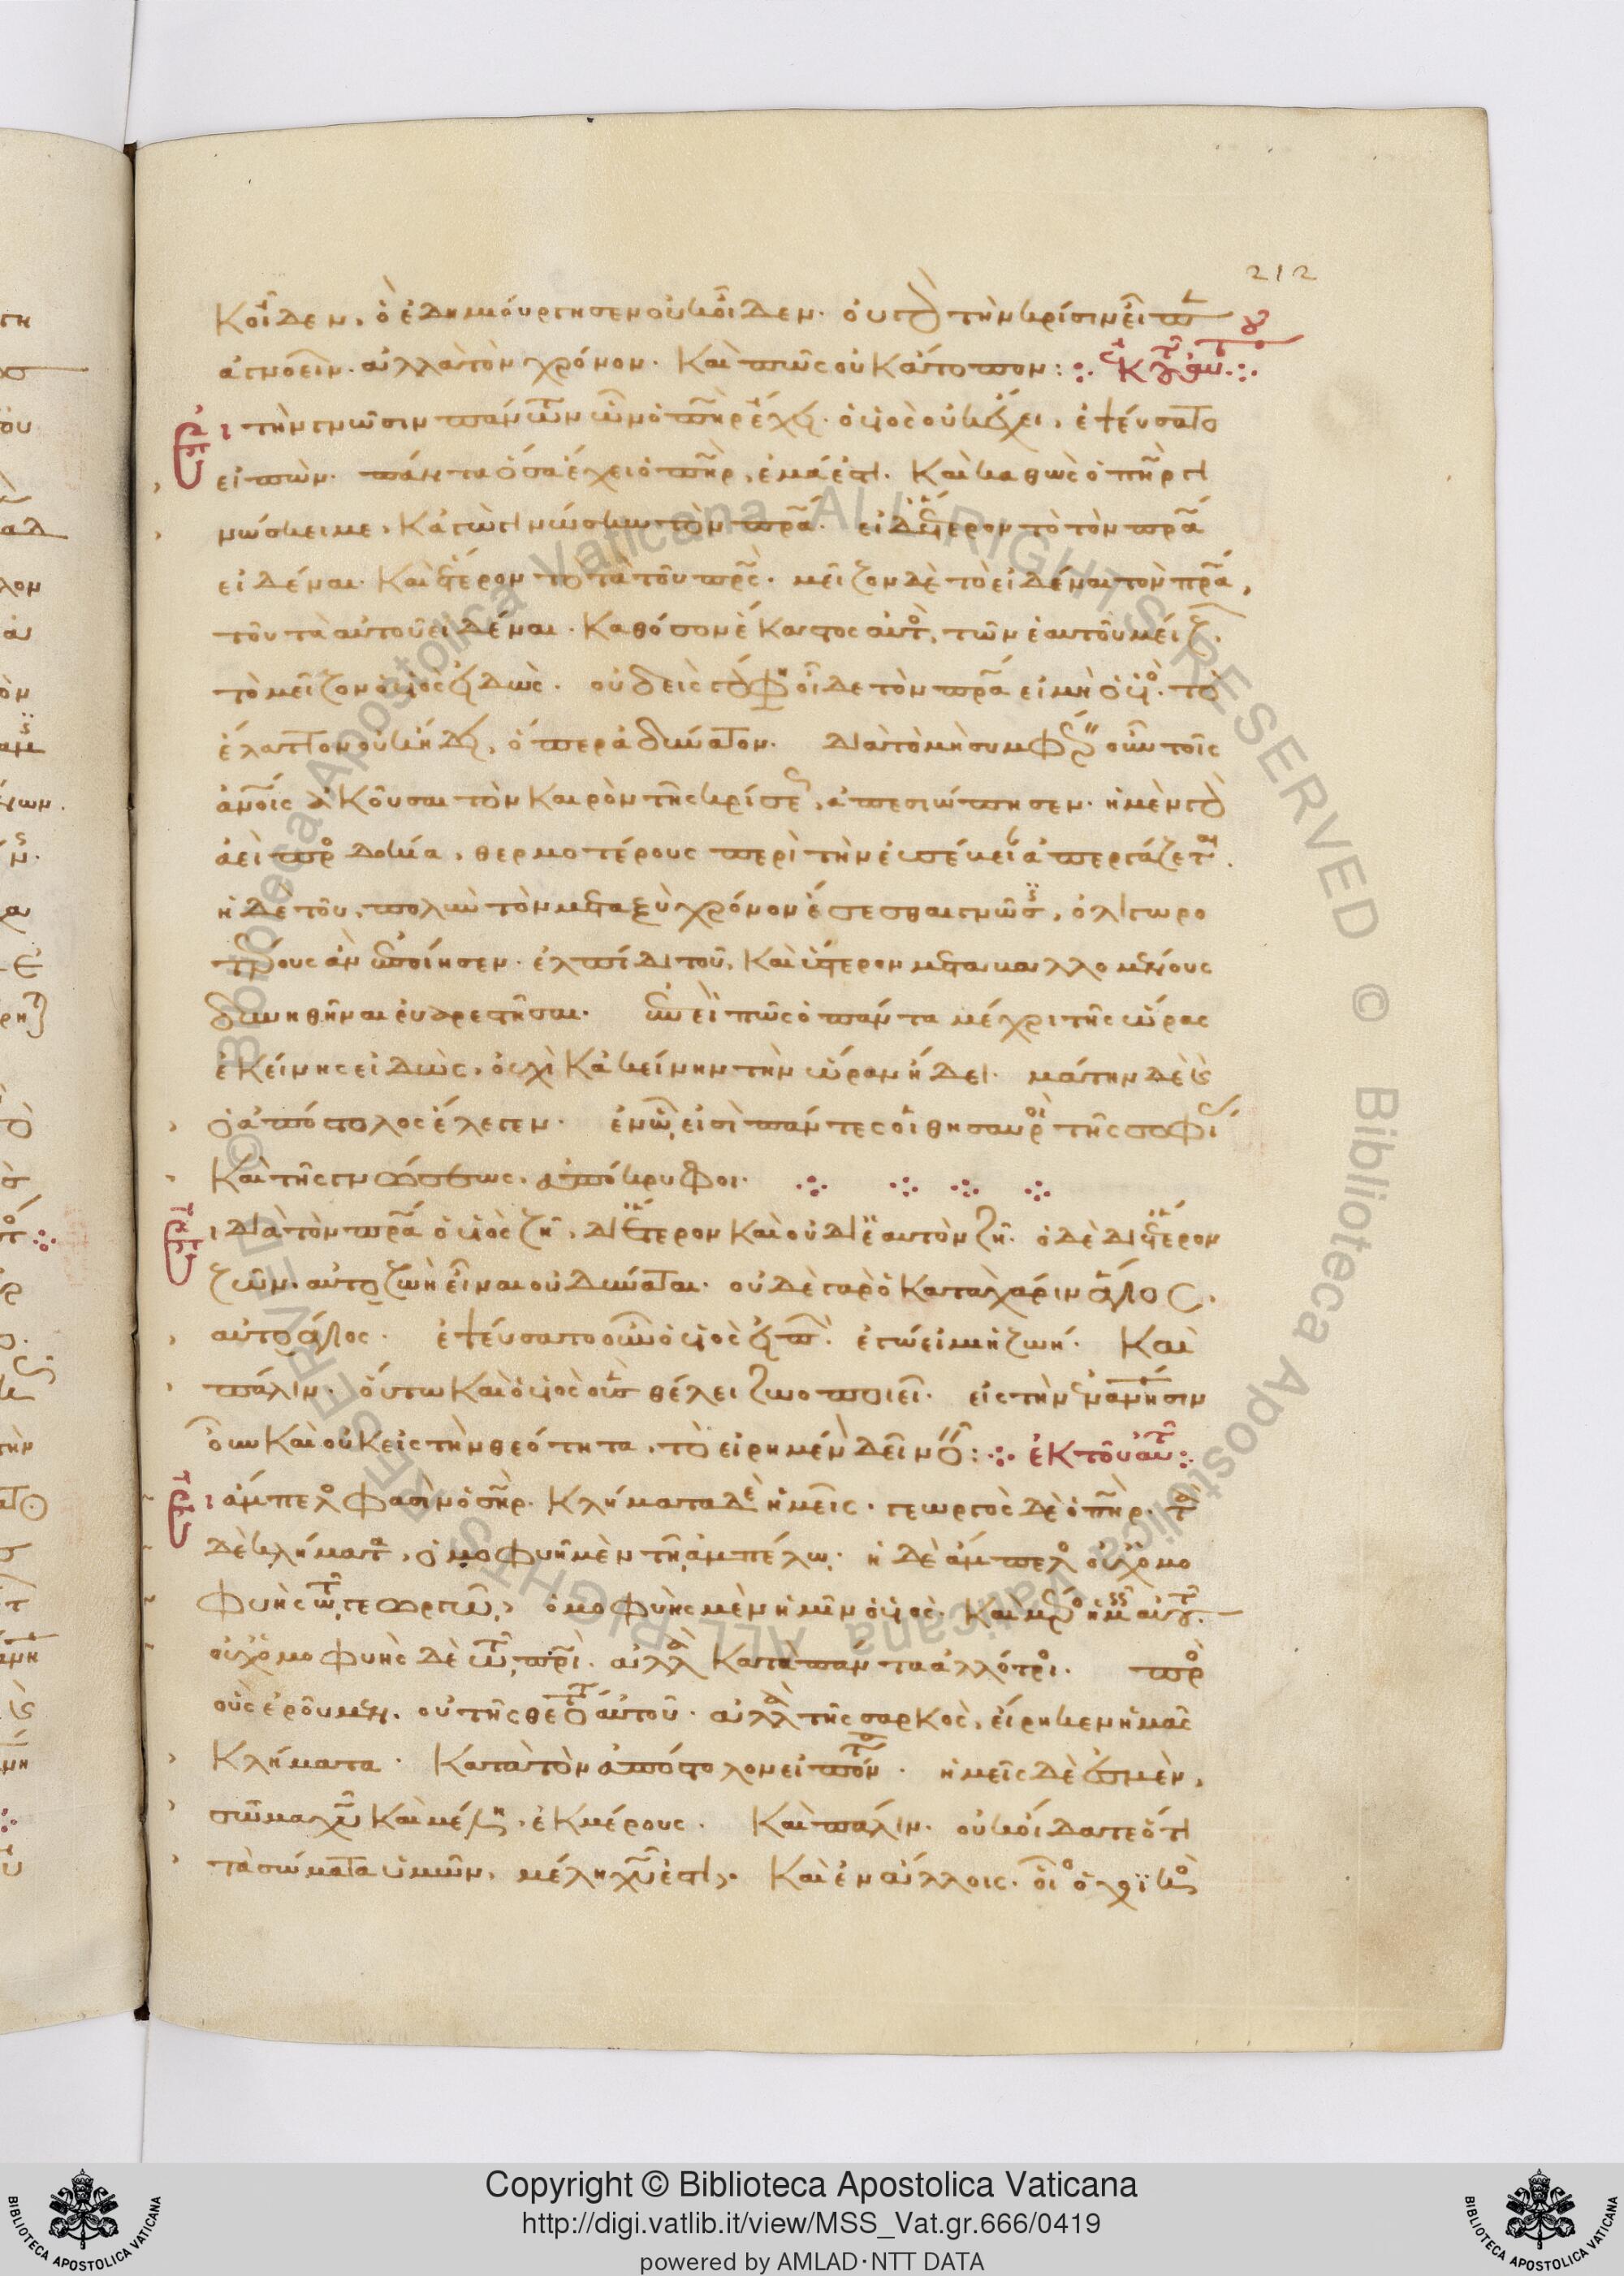 212
κ οἶδεν, ὃ ἐδημιούργησεν οὐκ οἶδεν. οὐ γὰρ τὴν κρίσιν εἶπ
ἀγνοεῖν. ἀλλὰ τὸν χρόνον. Καὶ πῶς οὐκ ἄτοπον: ἐκ τοῦ
Εἰ τὴν γνῶσιν πάντων ὧν ὁ πηρ ἔχει. ὁ υἱὸς οὐκ ἔχει, ἐψεύσατο
εἰπὼν. πάντα ὅσα ἔχει ὁ πηρ, ἐμά ἐστι. Καὶ καθὼς ὁ πηρ γι
νώσκει με, Κἀγὼ γινώσκω τὸν πρα. εἰ δὲ ἕτερον τὸ τὸν πρα
εἰδέναι. Καὶ ἕτερον τὸ τὰ τοῦ πρς. μεῖζον δὲ τὸ εἰδέναι τὸν πρα,
τοῦ τὰ αὐτοῦ εἰδέναι. Καθόσον ἕκαστος αὐτὸ, τῶν ἑαυτοῦ μείζ.
τὸ μεῖζον ὁ υἱὸς εἰδὼς. οὐδεὶς γὰρ φη οἶδε τὸν πρα εἰ μὴ ὁ υἱὸ. τὸ
ἔλαττον οὐκ ᾔδει, ὅπερ ἀδύνατον. Διὰ τὸ μὴ συμφέρειν οὖν τοῖς
ἀνοις ἀκοῦσαι τὸν Καιρὸν τῆς κρίσε, ἀπεσιώπησεν. ἡ μὲν γὰρ
ἀεὶ προσδοκία, θερμοτέρους περὶ τὴν εὐσέβει ἀπεργάζεται.
ἡ δὲ τοῦ, πολὺν τὸν μεταξὺ χρόνον ἔσεσθαι γνῶσ, ὀλιγωρο
τέρους ἂν ἐποίησεν. ἐλπίδι τοῦ, Καὶ ὕστερον μεταμαλλομένους
δυνηθῆναι εὐαρεστῆσαι. ἐπεὶ πῶς ὁ πάντα μέχρι τῆς ὥρας
ἐκείνης εἰδὼς, οὐχὶ Κἀκείνην τὴν ὥραν ᾔδει. μάτην δὲ καὶ
ὁ ἀπόστολος ἔλεγεν. ἐν ᾧ εἰσὶ πάντες οἱ θησαυροὶ τῆς σοφί
Καὶ τῆς γνώσεως, ἀπόκρυφοι.
Εἰ διὰ τὸν πρα ὁ υἱὸς ζῆ, δι ἕτερον Καὶ οὐ δι ἑαυτὸν ζῆ. ὁ δὲ δι ἕτερον
ζῶν, αὐτοζωὴ εἶναι οὐ δύναται. οὐδὲ γὰρ ὁ Κατὰ χάριν ἅγιος.
αὐτοάγιος. ἐψεύσατο οὖν ὁ υἱὸς εἰπὼν. ἐγώ εἰμι ἡ ζωή. Καὶ
πάλιν. οὕτω Καὶ ὁ υἱὸς οὓς θέλει ζωοποιεῖ. εἰς τὴν ἐνανησιν
οὖν Καὶ οὐκ εἰς τὴν θεότητα, τὸ εἰρημέν δεῖ νο: ἐκ τοῦ αὐτ
Εἰ ἄμπελ φασὶν ὁ σηρ. Κλήματα δὲ ἡμεῖς. γεωργὸς δὲ ὁ πηρ. τὰ
δὲ κλήματ, ὁμοφυῆ μὲν τῇ ἀμπέλῳ. ἡ δὲ ἄμπελ οὐχ ὁμο
φυὴς τῷ γεωργῷ, ὁμοφυὴς μὲν ἡμῖν ὁ υἱὸς. Καὶ μέρη ἡμεῖς αὐτ.
οὐχ ὁμοφυὴς δὲ τῷ πρὶ. ἀλλὰ Κατὰ πάντα ἀλλότρι. πρὸ
οὓς ἐροῦμεν. οὐ τῆς θεότητ αὐτοῦ. ἀλλὰ τῆς σαρκὸς, εἴρηκεν ἡμᾶς
Κλήματα. Κατὰ τὸν ἀπόστολον εἰπόντ. ἡμεῖς δὲ ἐσμὲν,
σῶμα χυ Καὶ μέλη ἐκ μέρους. Καὶ πάλιν. οὐκ οἴδατε ὅτι
τὰ σώματα ὑμῶν, μέλη χυ ἐστι. Καὶ ἐν ἄλλοις. οἷο ὁ χοϊκὸς
Copyright © Biblioteca Apostolica Vaticana
http://digi.vatlib.it/view/MSS_Vat.gr.666/0419
powered by AMLAD·NTT DATA